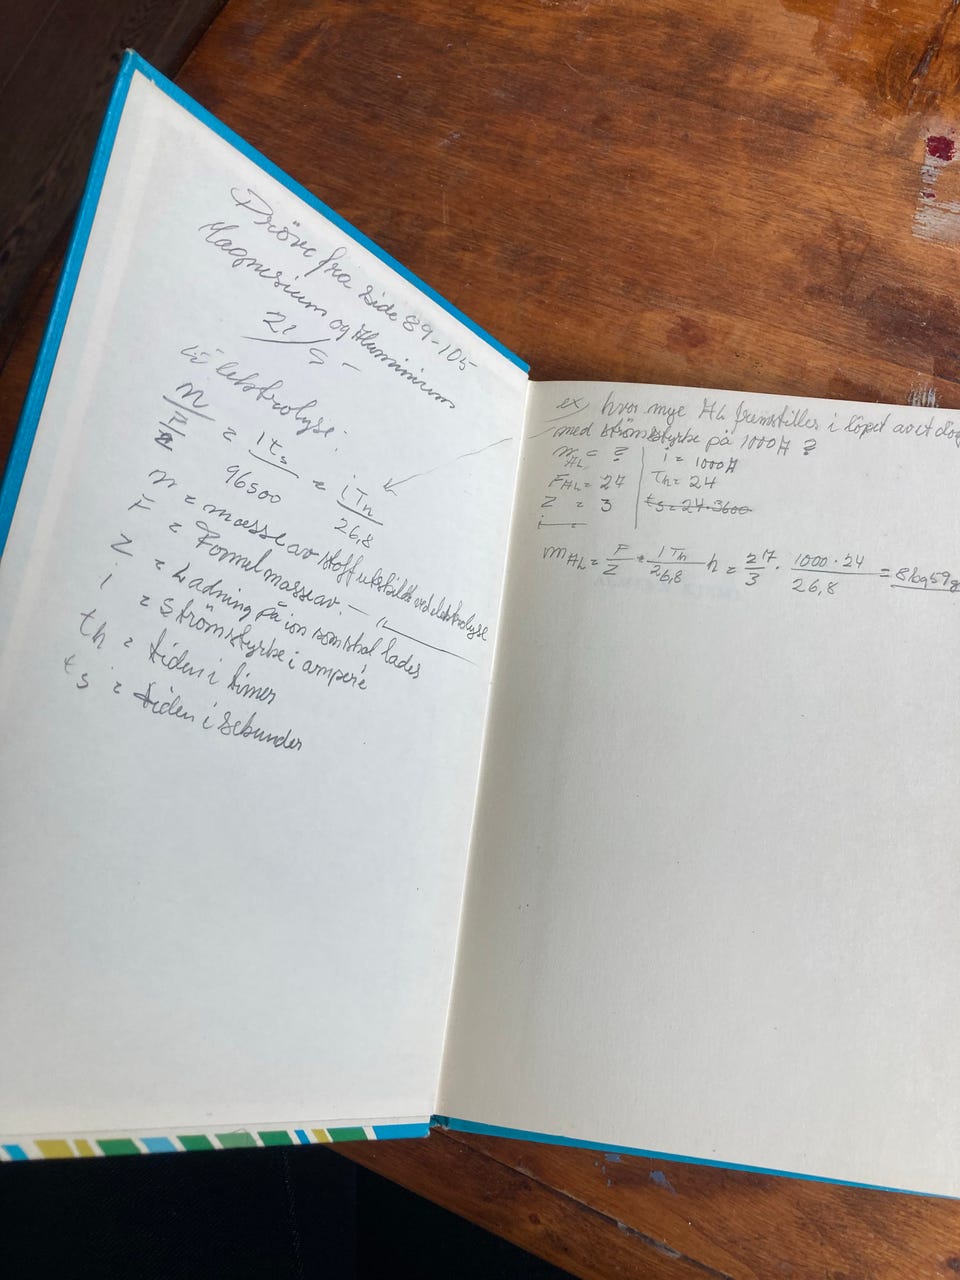 Pröve fra side 89-105
Magnesium og Aluminium
21/9 -
Elektrolyse:
m / F/Z = i ts / 96500 = i Th / 26,8
m = masse av stoff utskilt ved elektrolyse
F = Formelmasse av — " —
Z = Ladning på ion som skal lades
i = Strömstyrke i ampere
th = tiden i timer
ts = tiden i sekunder
ex) hvor mye AL fremstilles i löpet av et døg
med strömstyrke på 1000A ?
mAL = ? i = 1000A
FAL = 27 Th = 24
Z = 3 ts = 24·3600
i
mAL = F/Z · i Th / 26,8 = 27/3 · 1000·24 / 26,8 = 8kg59g